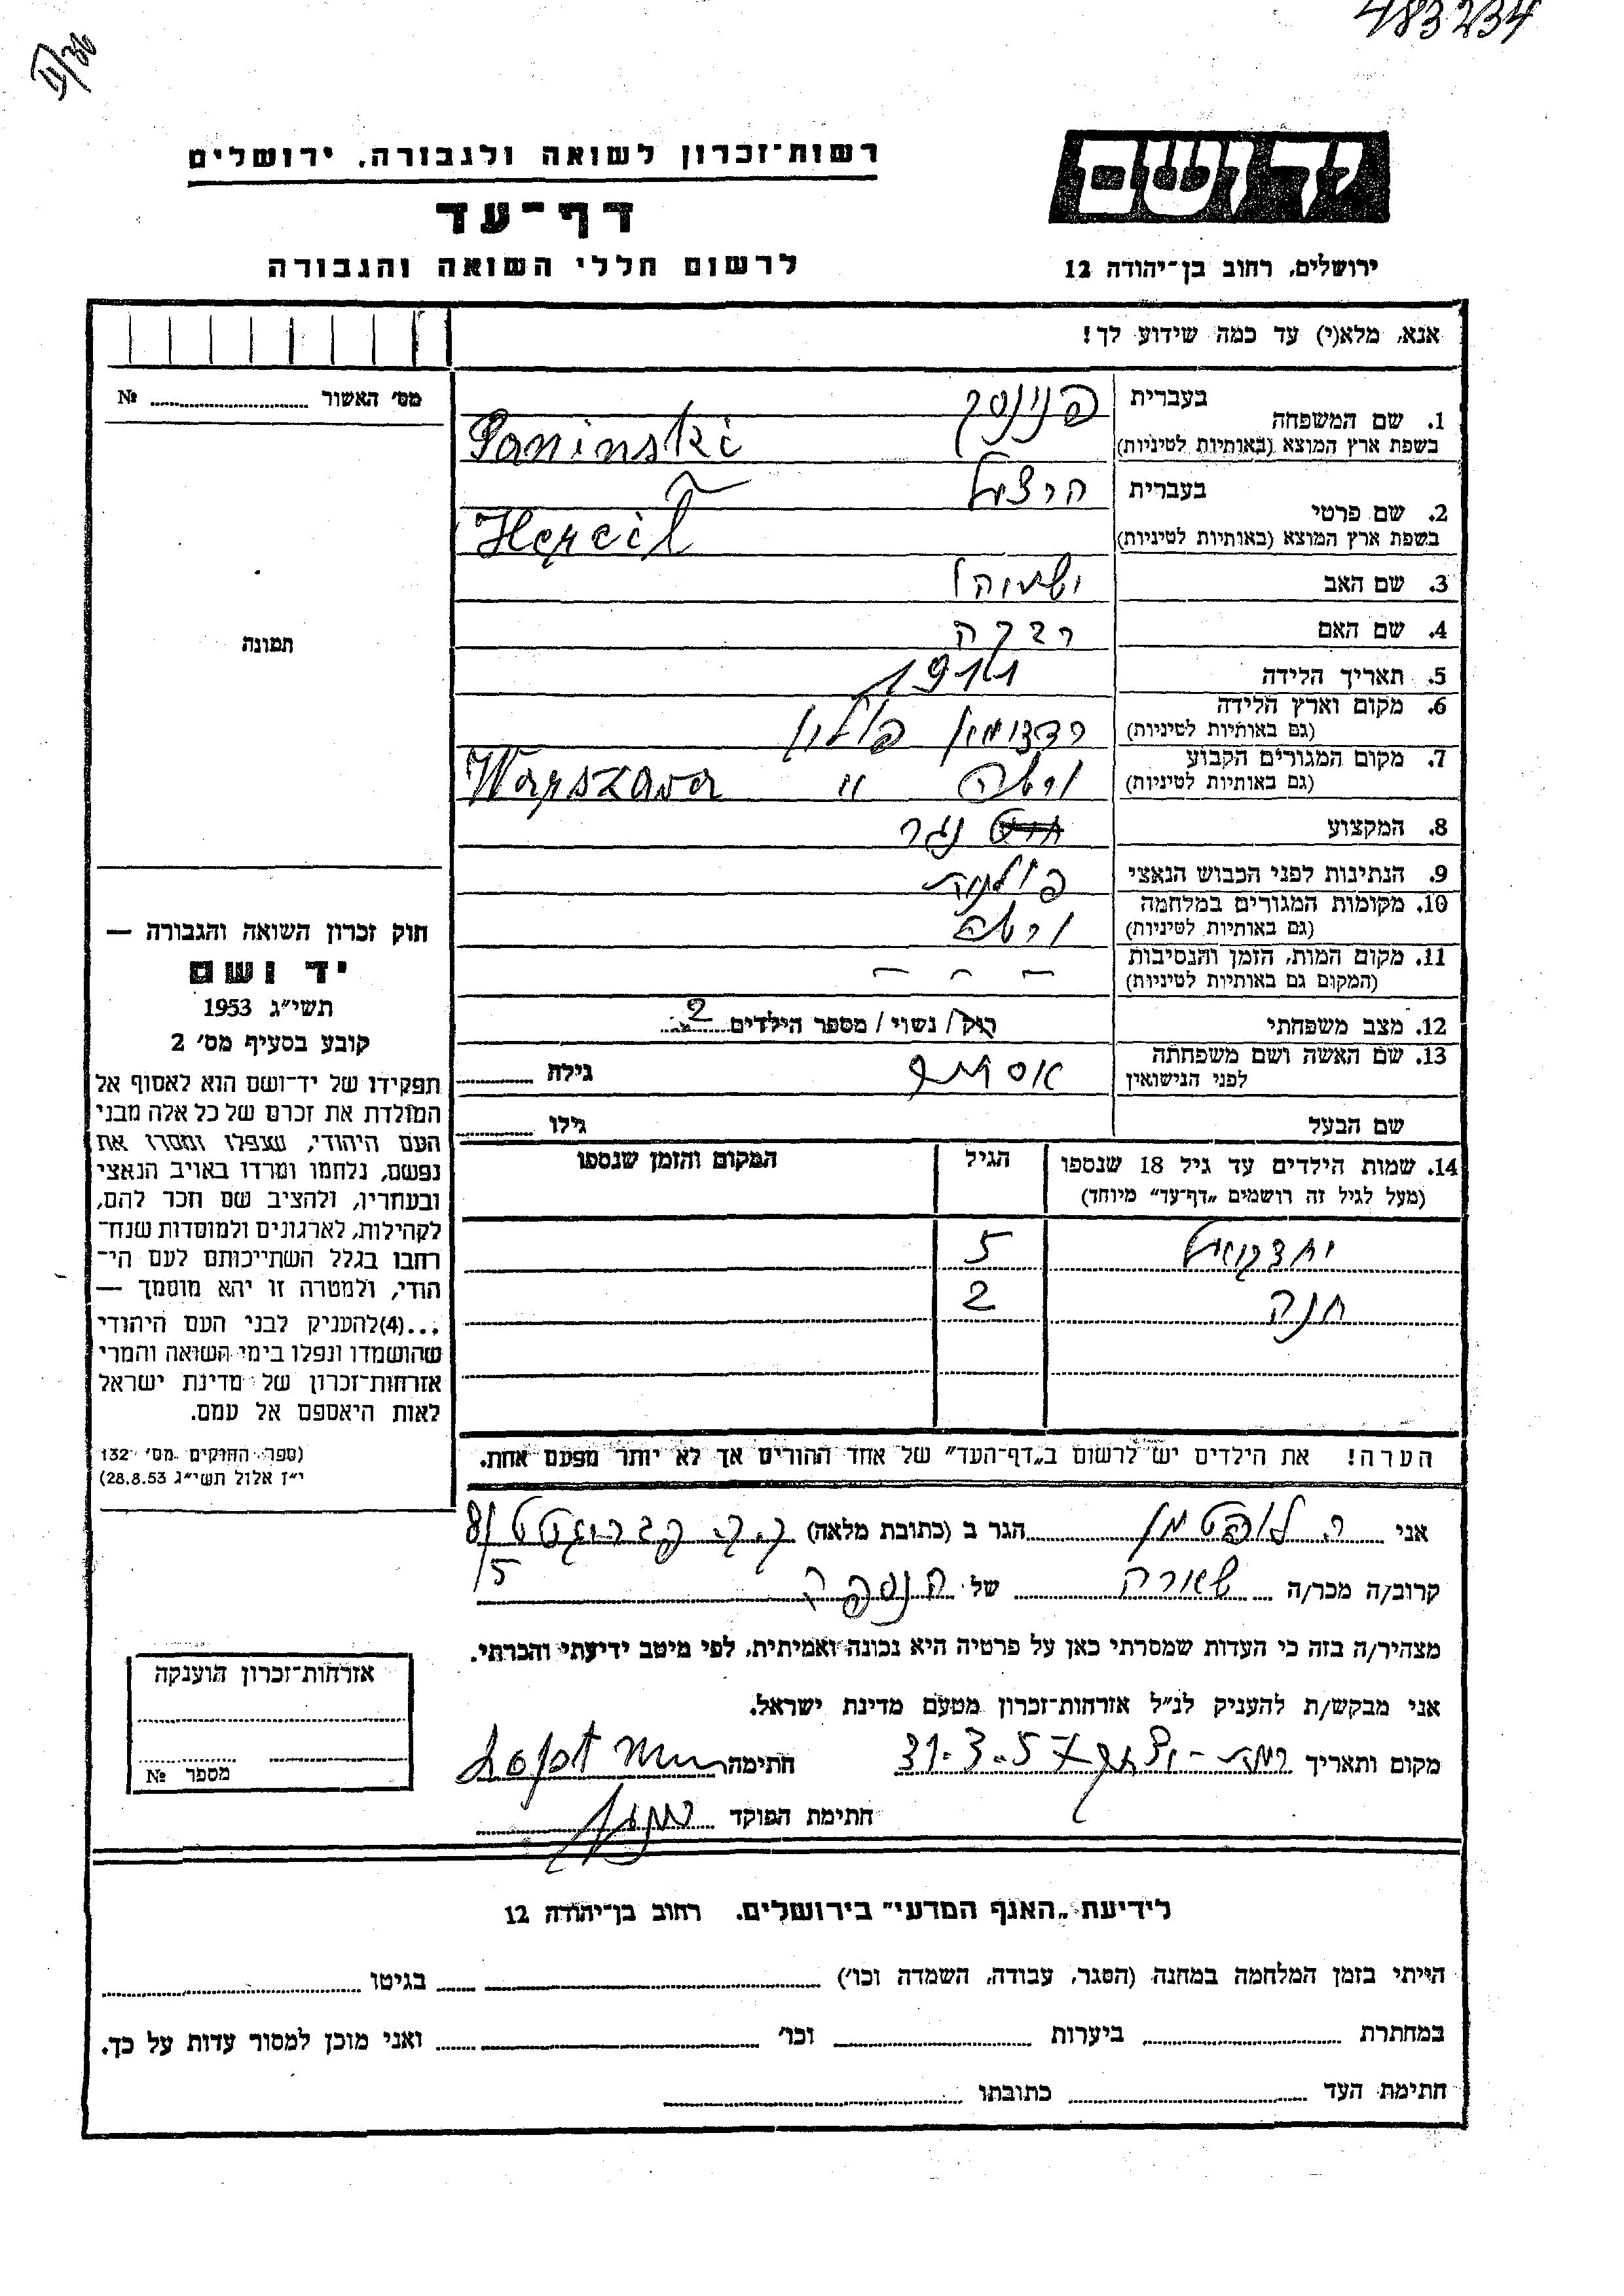 483234
II/36
יד ושם
רשות־זכרון לשואה ולגבורה, ירושלים
דף־עד
לרשום חללי השואה והגבורה
ירושלים, רחוב בן־יהודה 12
אנא, מלא(י) עד כמה שידוע לך!
מס׳ האשור № 
1. שם המשפחה בעברית
בשפת ארץ המוצא (באותיות לטיניות) Paninski
2. שם פרטי בעברית הרציל
בשפת ארץ המוצא (באותיות לטיניות) Hercil
3. שם האב ישעיהו
4. שם האם רבקה
5. תאריך הלידה 1911
6. מקום וארץ הלידה רדזימין פולין
(גם באותיות לטיניות)
7. מקום המגורים הקבוע ורשה " Warszawa
(גם באותיות לטיניות)
8. המקצוע נגר
9. הנתינות לפני הכבוש הנאצי פולנית
10. מקומות המגורים במלחמה ורשה
(גם באותיות לטיניות)
11. מקום המות, הזמן והנסיבות – – –
(המקום גם באותיות לטיניות)
12. מצב משפחתי רוק / נשוי / מספר הילדים 2
13. שם האשה ושם משפחתה אסתר גילה
לפני הנישואין
שם הבעל גילו
14. שמות הילדים עד גיל 18 שנספו הגיל המקום והזמן שנספו
(מעל לגיל זה רושמים „דף־עד״ מיוחד)
יחזקיאל 5
חנה 2
הערה! את הילדים יש לרשום ב„דף־העד״ של אחד ההורים אך לא יותר מפעם אחת.
תמונה
חוק זכרון השואה והגבורה —
יד ושם
תשי״ג 1953
קובע בסעיף מס׳ 2
תפקידו של יד־ושם הוא לאסוף אל
המולדת את זכרם של כל אלה מבני
העם היהודי, שנפלו ומסרו את
נפשם, נלחמו ומרדו באויב הנאצי
ובעוזריו, ולהציב שם וזכר להם,
לקהילות, לארגונים ולמוסדות שנח־
רבו בגלל השתייכותם לעם הי־
הודי, ולמטרה זו יהא מוסמך —
...(4)להעניק לבני העם היהודי
שהושמדו ונפלו בימי השואה והמרי
אזרחות־זכרון של מדינת ישראל
לאות היאספם אל עמם.
(ספר החוקים מס׳ 132
י״ז אלול תשי״ג 28.8.53)
אני ר. לופטמן הגר ב (כתובת מלאה) 8/
קרוב/ה מכר/ה של הנספה 5/
מצהיר/ה בזה כי העדות שמסרתי כאן על פרטיה היא נכונה ואמיתית, לפי מיטב ידיעתי והכרתי.
אני מבקש/ת להעניק לנ״ל אזרחות־זכרון מטעם מדינת ישראל.
מקום ותאריך 31.3.57 חתימה
חתימת הפוקד
אזרחות־זכרון הוענקה
מספר №
לידיעת „האגף המדעי״ בירושלים, רחוב בן־יהודה 12
הייתי בזמן המלחמה במחנה (הסגר, עבודה, השמדה וכו׳) בגיטו
במחתרת ביערות וכו׳ ואני מוכן למסור עדות על כך.
חתימת העד כתובתו